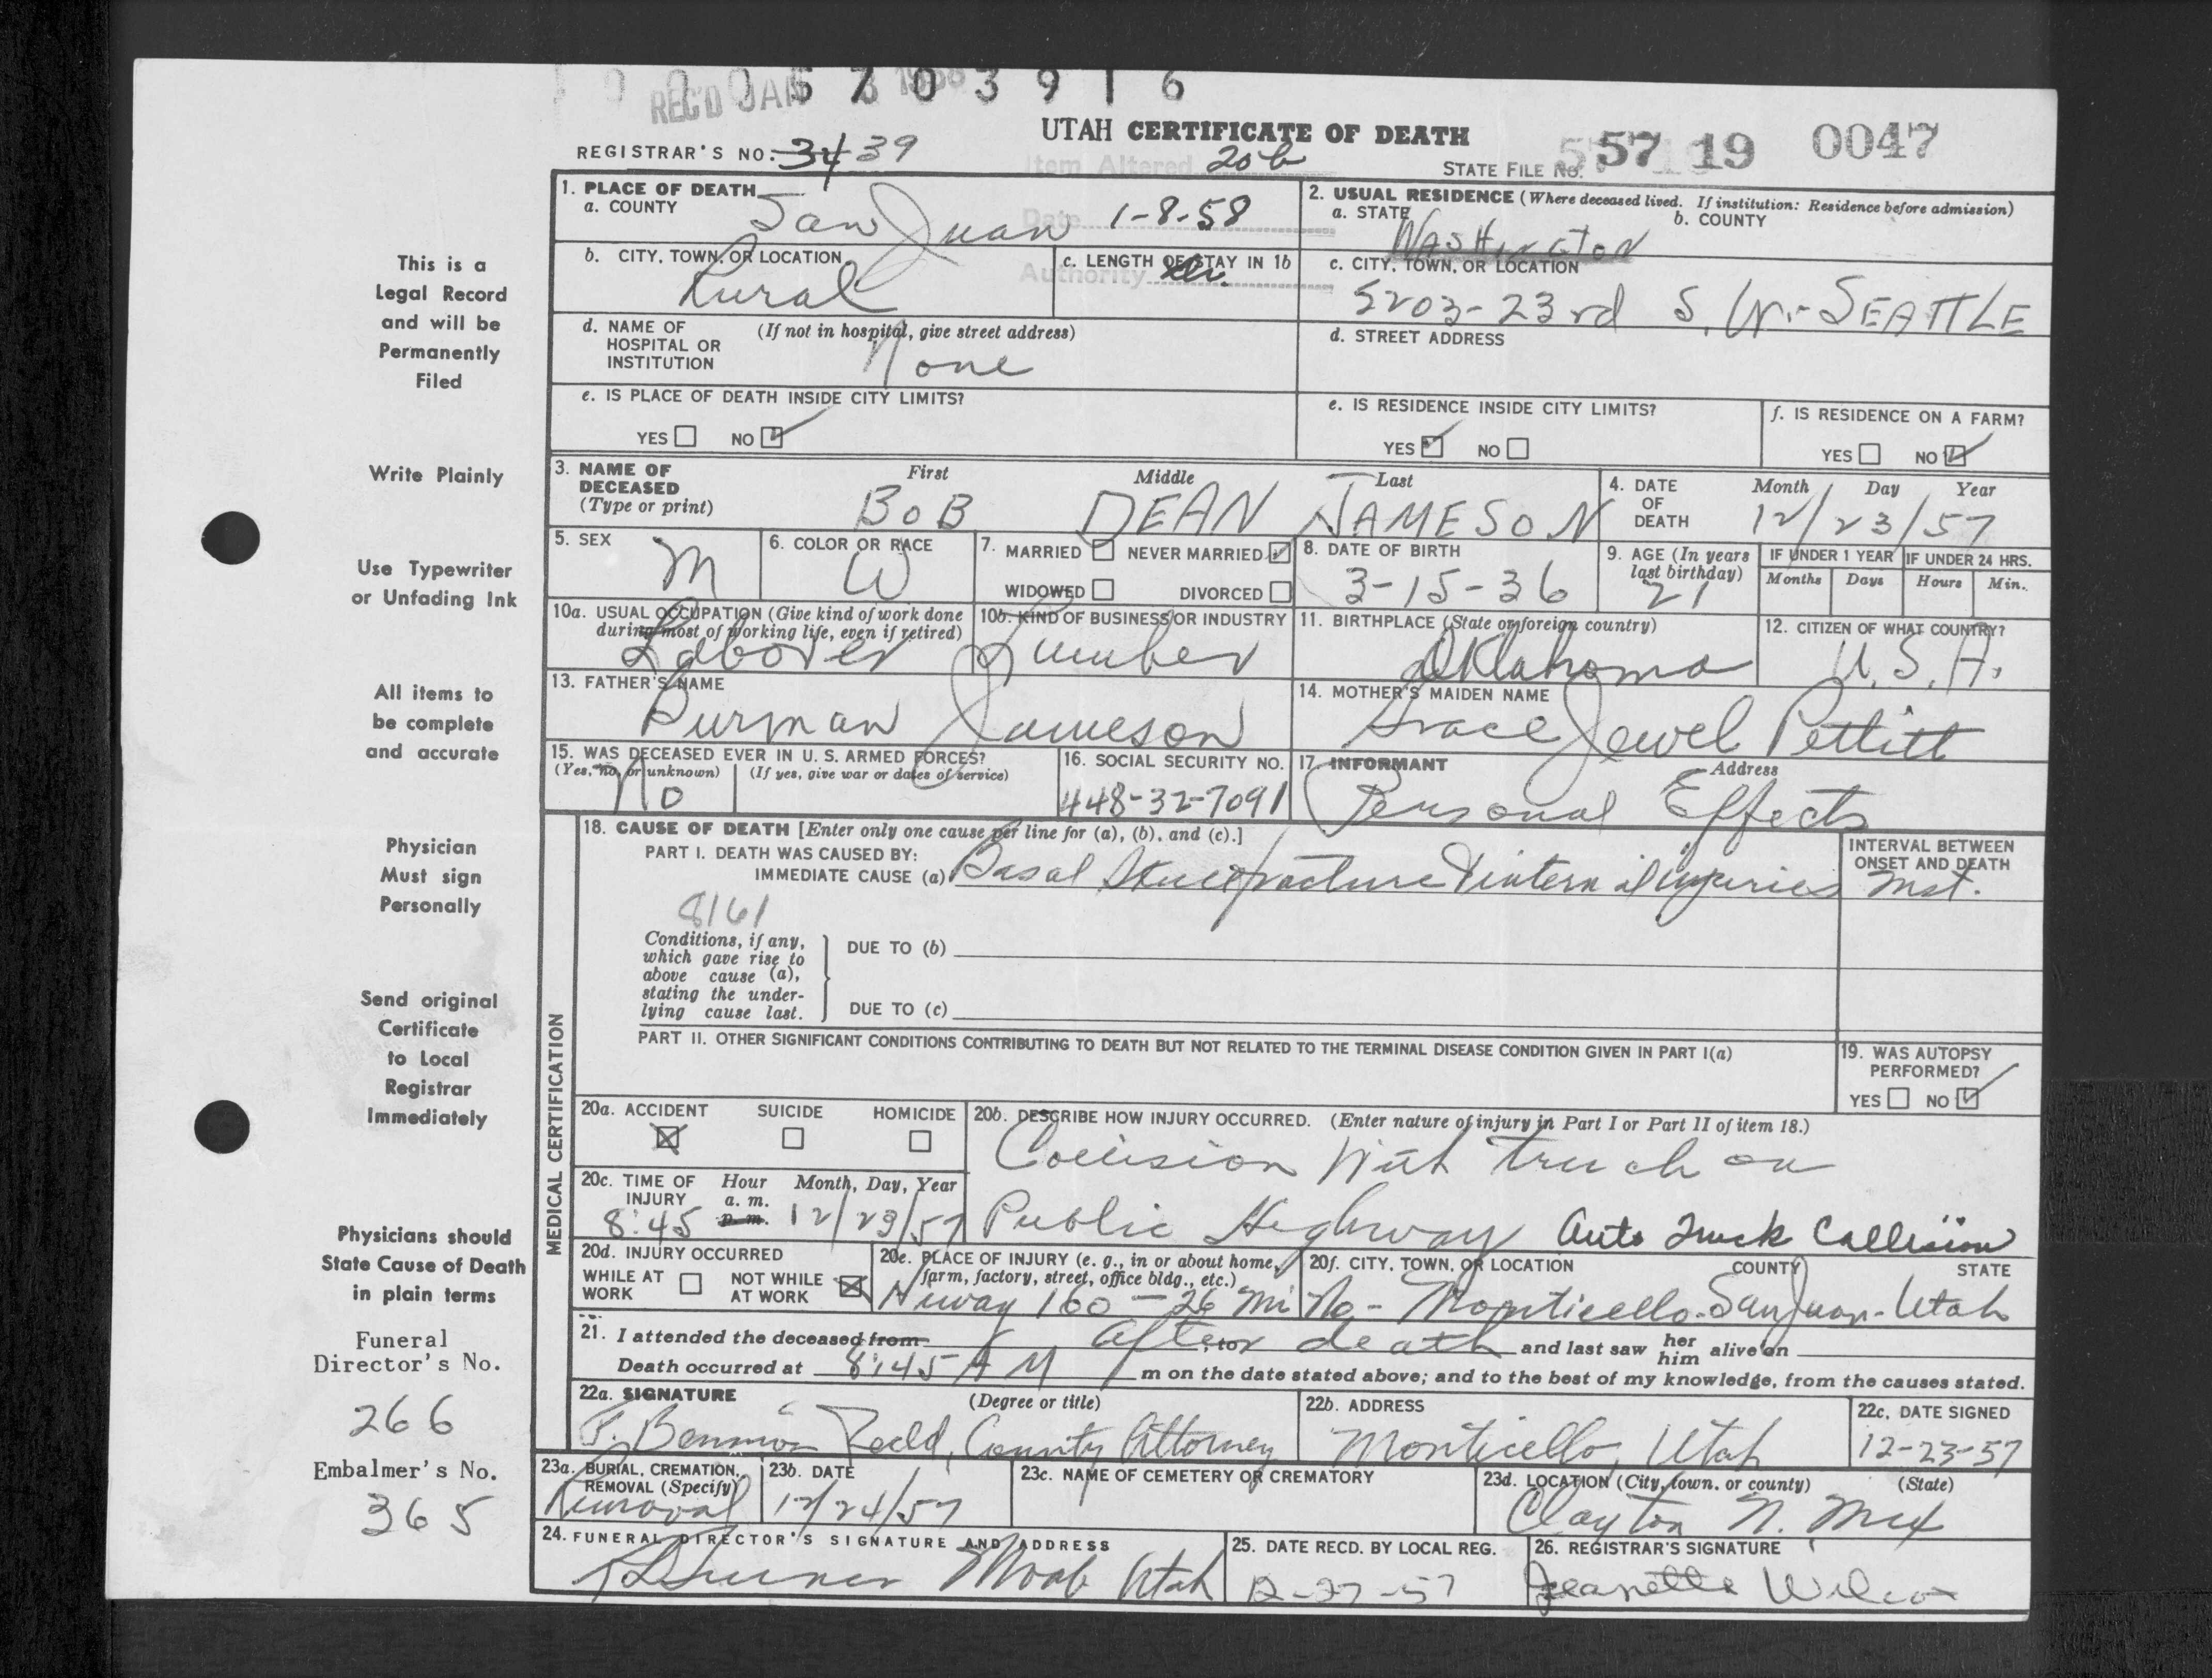 REC'D JAN 3 1958
5 7 0 3 9 1 6
UTAH CERTIFICATE OF DEATH
REGISTRAR'S NO. 34 39
Item Altered 20b
STATE FILE NO. 57 19 0047
1. PLACE OF DEATH
a. COUNTY San Juan
Date 1-8-58
2. USUAL RESIDENCE (Where deceased lived. If institution: Residence before admission)
a. STATE WASHINGTON b. COUNTY
b. CITY, TOWN, OR LOCATION Rural
c. LENGTH OF STAY IN 1b
Authority
c. CITY, TOWN, OR LOCATION
5203-23rd S.W. - SEATTLE
d. NAME OF HOSPITAL OR INSTITUTION (If not in hospital, give street address) None
d. STREET ADDRESS
e. IS PLACE OF DEATH INSIDE CITY LIMITS?
YES NO
e. IS RESIDENCE INSIDE CITY LIMITS?
YES NO
f. IS RESIDENCE ON A FARM?
YES NO
3. NAME OF DECEASED (Type or print)
First Middle Last
BOB DEAN JAMESON
4. DATE OF DEATH Month Day Year
12/23/57
5. SEX M
6. COLOR OR RACE W
7. MARRIED NEVER MARRIED
WIDOWED DIVORCED
8. DATE OF BIRTH
3-15-36
9. AGE (In years last birthday) 21
IF UNDER 1 YEAR Months Days
IF UNDER 24 HRS. Hours Min.
10a. USUAL OCCUPATION (Give kind of work done during most of working life, even if retired)
Laborer
10b. KIND OF BUSINESS OR INDUSTRY
Lumber
11. BIRTHPLACE (State or foreign country)
Oklahoma
12. CITIZEN OF WHAT COUNTRY?
U.S.A.
13. FATHER'S NAME
Burman Jameson
14. MOTHER'S MAIDEN NAME
Grace Jewel Pettitt
15. WAS DECEASED EVER IN U. S. ARMED FORCES?
(Yes, no, or unknown) (If yes, give war or dates of service)
No
16. SOCIAL SECURITY NO.
448-32-7091
17. INFORMANT Address
Personal Effects
MEDICAL CERTIFICATION
18. CAUSE OF DEATH [Enter only one cause per line for (a), (b), and (c).]
PART I. DEATH WAS CAUSED BY:
IMMEDIATE CAUSE (a) Basal Skull fracture & internal injuries
INTERVAL BETWEEN ONSET AND DEATH
Inst.
8161
Conditions, if any, which gave rise to above cause (a), stating the underlying cause last.
DUE TO (b)
DUE TO (c)
PART II. OTHER SIGNIFICANT CONDITIONS CONTRIBUTING TO DEATH BUT NOT RELATED TO THE TERMINAL DISEASE CONDITION GIVEN IN PART I(a)
19. WAS AUTOPSY PERFORMED?
YES NO
20a. ACCIDENT SUICIDE HOMICIDE
20b. DESCRIBE HOW INJURY OCCURRED. (Enter nature of injury in Part I or Part II of item 18.)
Collision With truck on
Public Highway Auto Truck Collision
20c. TIME OF INJURY Hour a. m. p. m. Month, Day, Year
8:45 12/23/57
20d. INJURY OCCURRED
WHILE AT WORK NOT WHILE AT WORK
20e. PLACE OF INJURY (e. g., in or about home, farm, factory, street, office bldg., etc.)
20f. CITY, TOWN, OR LOCATION COUNTY STATE
Hiway 160 - 26 Mi No - Monticello - San Juan - Utah
21. I attended the deceased from after death, to and last saw her him alive on
Death occurred at 8:45 A M m on the date stated above; and to the best of my knowledge, from the causes stated.
22a. SIGNATURE (Degree or title)
F. Bennion Redd, County Attorney
22b. ADDRESS
Monticello, Utah
22c. DATE SIGNED
12-23-57
23a. BURIAL, CREMATION, REMOVAL (Specify)
Removal
23b. DATE
12/24/57
23c. NAME OF CEMETERY OR CREMATORY
23d. LOCATION (City, town, or county) (State)
Clayton N. Mex
24. FUNERAL DIRECTOR'S SIGNATURE AND ADDRESS
Moab Utah
25. DATE RECD. BY LOCAL REG.
12-27-57
26. REGISTRAR'S SIGNATURE
Jeanette Wilcox
This is a
Legal Record
and will be
Permanently
Filed
Write Plainly
Use Typewriter
or Unfading Ink
All items to
be complete
and accurate
Physician
Must sign
Personally
Send original
Certificate
to Local
Registrar
Immediately
Physicians should
State Cause of Death
in plain terms
Funeral
Director's No.
266
Embalmer's No.
365